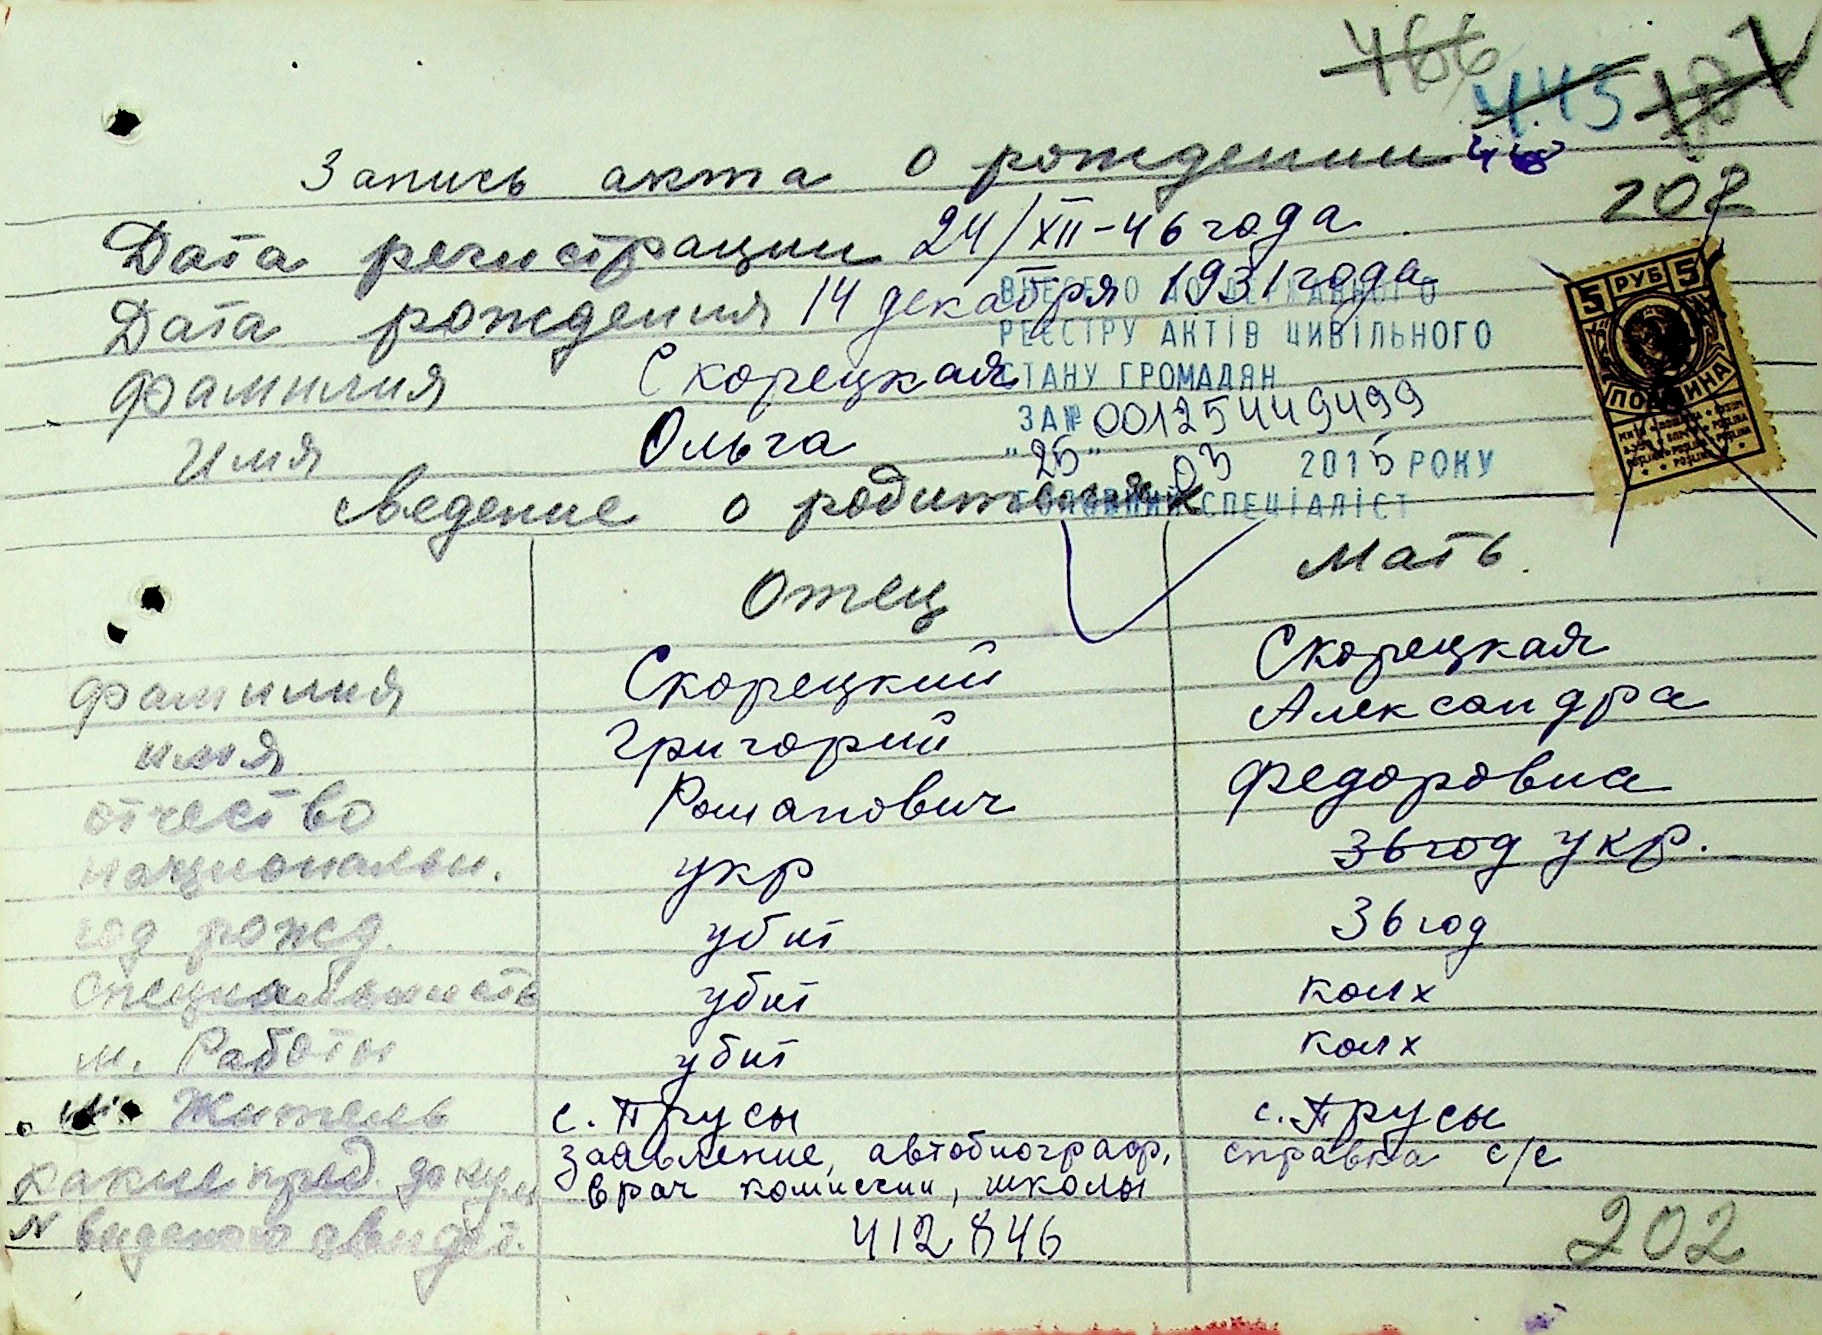 466 445 187
Запись акта о рождении 
202
Дата регистрации 24/XII-46 года
Дата рождения 14 декабря 1931 года
5 РУБ 5
ВНЕСЕНО ДО ДЕРЖАВНОГО
РЕЄСТРУ АКТІВ ЦИВІЛЬНОГО
Фамилия Скорецкая
СТАНУ ГРОМАДЯН
ЗА № 00125449499
Имя Ольга
"25" 03 2015 РОКУ
ГОЛОВНИЙ СПЕЦІАЛІСТ
Сведение о родителях
Отец Мать.
Фамилия Скорецкий Скорецкая
имя Григорий Александра
отчество Романович Федоровна
национальн. укр 36 год укр.
год рожд. убит 36 год
Специальность убит колх
м. Работы убит колх
м. Житель с. Прусы с. Прусы
Какие пред. докум заявление, автобиограф, справка с/с
врач комиссии, школы
N выданого свидет. 412846
202